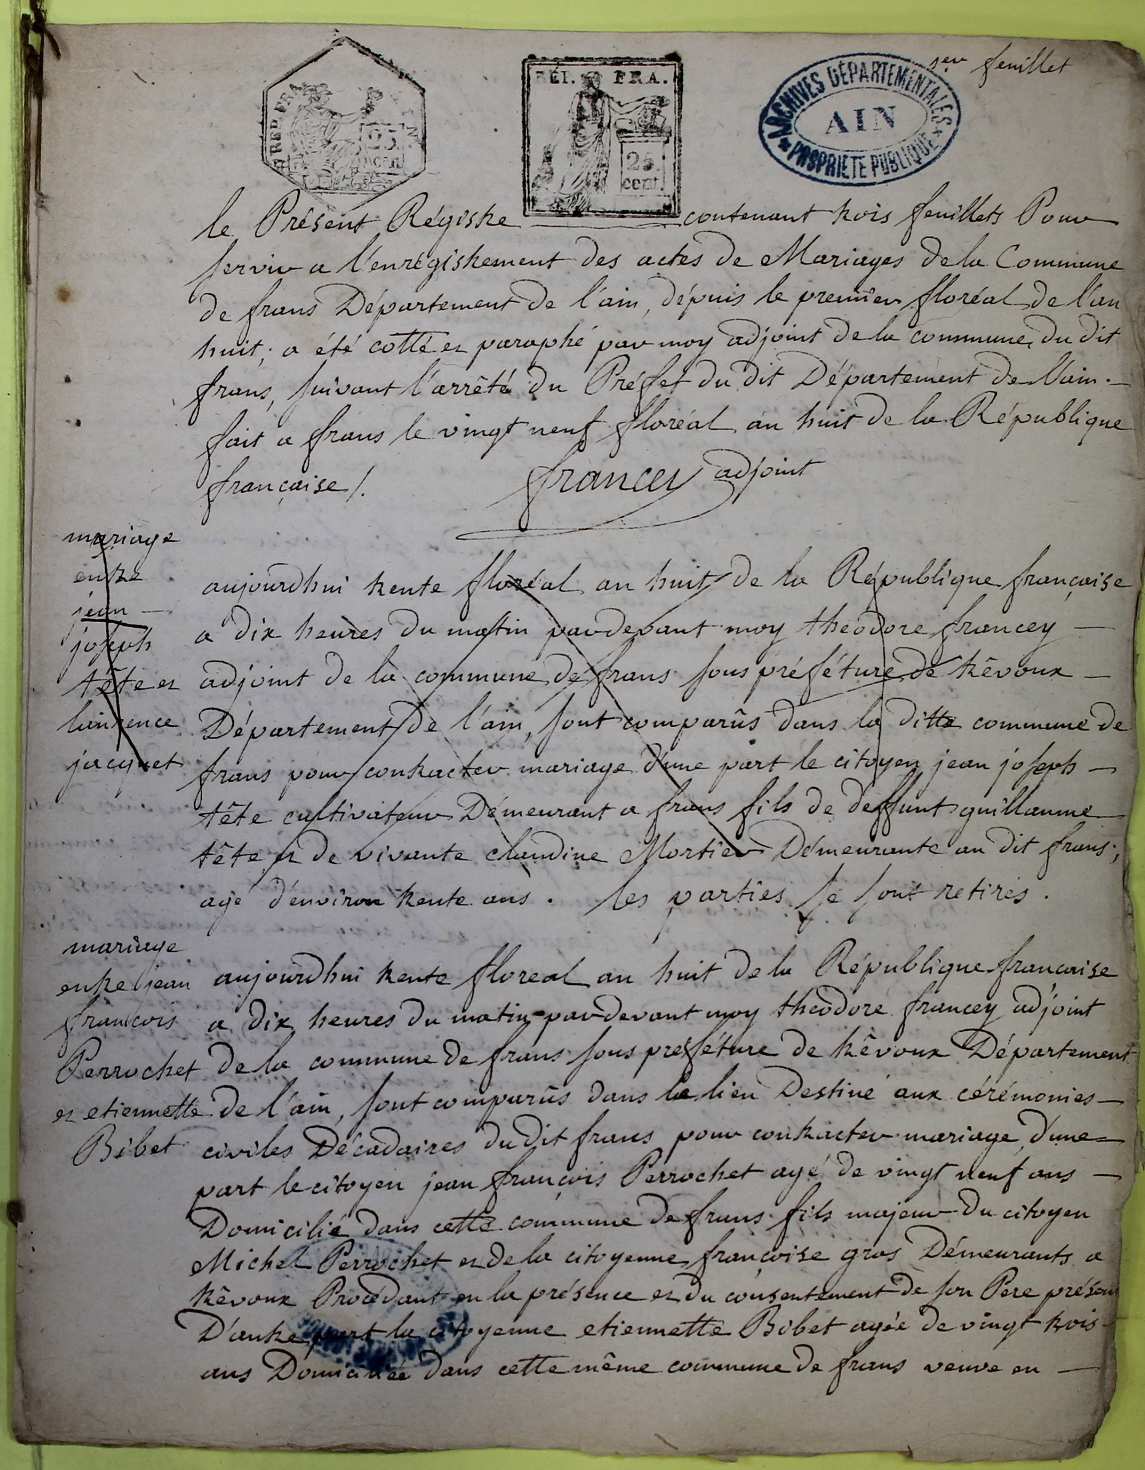 1er feuillet
RÉP. FRA.
25 cent.
REP. FRA.
25
cent.
ARCHIVES DÉPARTEMENTALES
AIN
PROPRIÉTÉ PUBLIQUE
le Présent Régistre contenant trois feuillets Pour
servir a l'enrégistrement des actes de Mariages de la Commune
de frans Département de l'ain, dépuis le premier floréal de l'an
huit, a été cotté et paraphé par moy adjoint de la commune du dit
frans, suivant l'arrêté du Préfet du dit Département de l'ain.
fait a frans le vingt neuf floréal an huit de la République
française /. francey adjoint
mariage
entre
jean
joseph
tête et
laurence
jacquet
aujourdhui trente floréal an huit de la République française
a dix heures du matin pardevant moy théodore francey
adjoint de la commune de frans sous préféture de trêvoux
Département de l'ain, sont comparûs dans la ditte commune de
frans pour contracter mariage d'une part le citoyen jean joseph
tête cultivateur Démeurant a frans fils de deffunt guillaume
tête et de vivante claudine Mortier Démeurante au dit frans,
agé d'environ trente ans. les parties se sont retirés.
mariage
entre jean
francois
Perrochet
et etiennette
Bibet
aujourdhui trente floreal an huit de la République francaise
a dix heures du matin pardevant moy théodore francey adjoint
de la commune de frans sous preféture de trêvoux Département
de l'ain, sont comparûs dans le lieu Destiné aux cérémonies
civiles Décadaires du dit frans pour contracter mariage d'une
part le citoyen jean françois Perrochet agé de vingt neuf ans
Domicilié dans cette commune de frans fils majeur du citoyen
Michel Perrochet et de la citoyenne françoise gros Démeurants a
trêvoux Procédant en la présence et du consentement de son Pere présent
D'autre part la citoyenne etiennette Bibet agée de vingt trois
ans Domiciliée dans cette même commune de frans veuve en